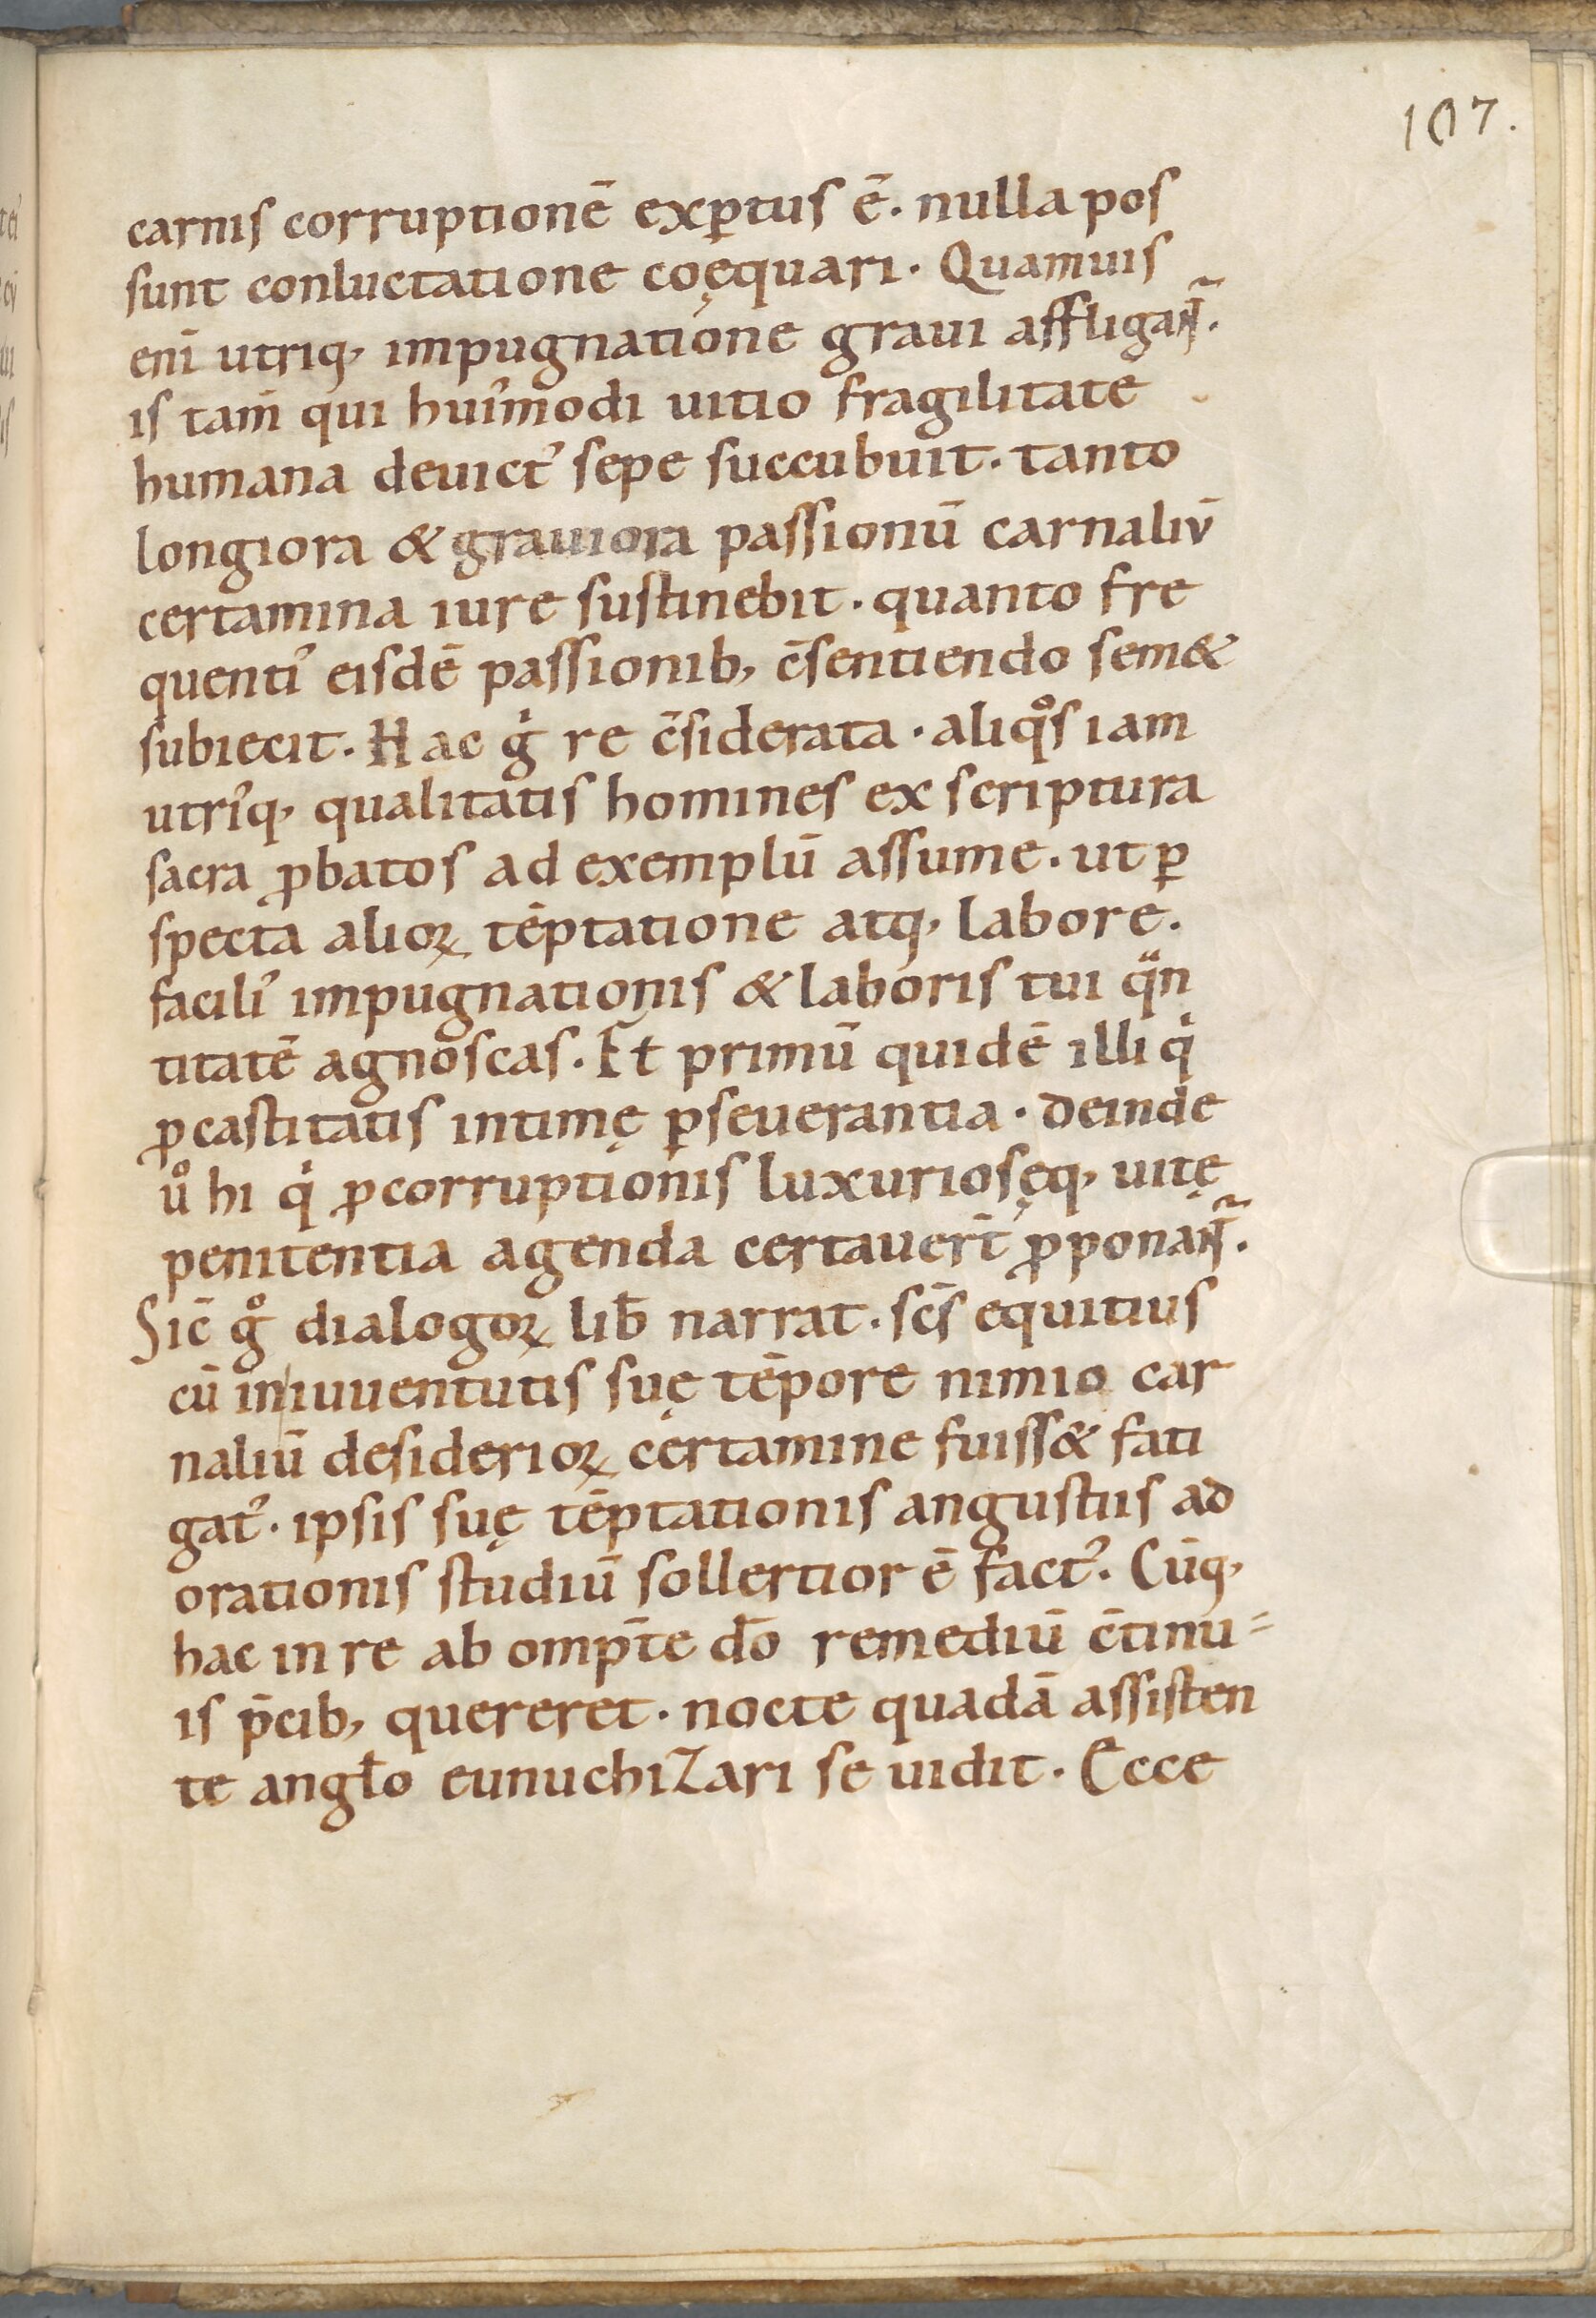 107.
carnis corruptionē exꝑtus ē. nulla pos
sunt conluctatione coęquari. Quamuis
enī utriq, impugnatione graui affligant̄.
is tam̄ qui hui᾽modi uitio fragilitate
humana deuict᾽ sepe succubuit. tanto
longiora & grauiora passionū carnaliū
certamina iure sustinebit. quanto fre
quenti᾽ eisdē passionib, c̄sentiendo sem&
subiecit. Hac gͥ re c̄siderata. aliqͦs iam
utri᾽q, qualitatis homines ex scriptura
sacra ꝓbatos ad exemplū assume. ut ꝑ
specta alioꝝ tēptatione atq, labore.
facili᾽ impugnationis & laboris tui qᷓn
titatē agnoscas. Et primū quidē illi qͥ
ꝓ castitatis intimę ꝑseuerantia. deinde
uͦ hi qͥ ꝓ corruptionis luxurioseęq, uitę
penitentia agenda certauer̄t ꝓponant̄.
Sic̄ gͦ dialogoꝝ lib̄ narrat. sc̄s equitius
cū in iuuentutis suę tēpore nimio car
naliū desiderioꝝ certamine fuiss& fati
gat᾽. ipsis suę tēptationis angustiis ad
orationis studiū sollertior ē fact᾽. Cūq,
hac in re ab omp̄te dō remediū c̄tinu=
is p̄cib, quereret. nocte quadā assisten
te angło eunuchizari se uidit. Ecce